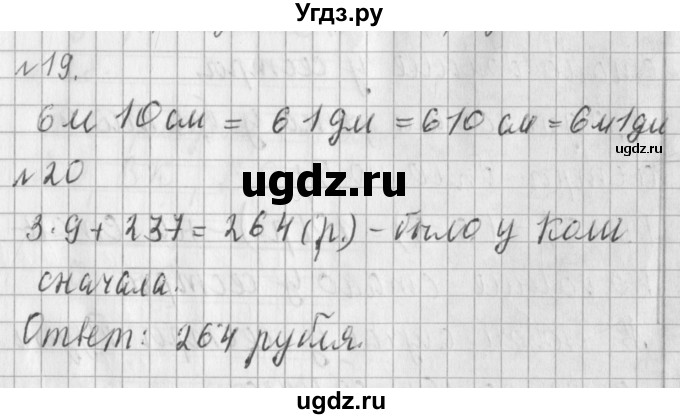 Угдз.ру
№19.
6м 10см = 61дм = 610 см = 6м1дм
ugdz.ru
№20
ugdz.ru
3·9+237=264(р.) – было у Коли
сначала.
Ответ: 264 рубля.
ugdz.ru
ugdz.ru